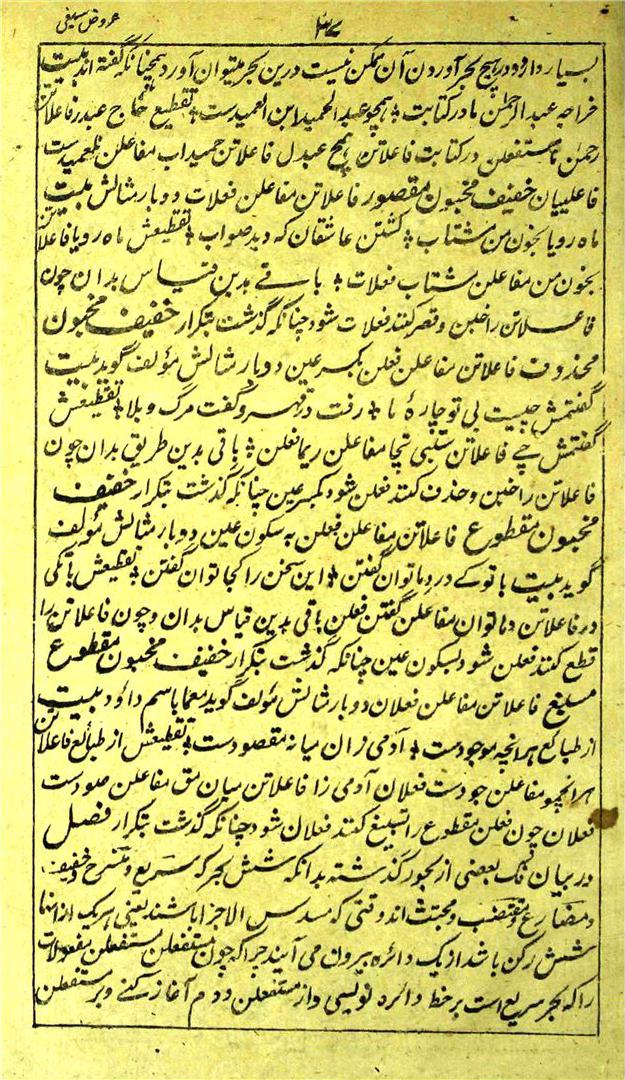 عروض سیفی
۳۷
بسیار دارد و در هیچ بحر آوردن آن ممکن نیست درین بحر میتوان آورد همچنانکه گفته اند بیت
خواجه عبد الرحمٰن ما در کتابت ؞ همچو عبد الحمید ابن العمیدست ؞ تقطیع خاج عبدر فاعلاتن
رحمٰن ما مستفعلن در کتابت فاعلاتن همچ عبدل فاعلاتن حمیداب مفاعلن نلعمیدست
فاعلییان خفیف مخبون مقصور فاعلاتن مفاعلن فعلات دو بار مثالش بیت
ماه رویا بخون من مشتاب ؞ کشتن عاشقان که دید صواب ؞ تقطیعش ماه رویا فاعلاتن
بخون من مفاعلن مشتاب فعلات ؞ باقے بدین قیاس بدان چون
فاعلاتن را خبن و قصر کنند فعلات شود چنانکه گذشت بتکرار خفیف مخبون
محذوف فاعلاتن مفاعلن فعلن بکسر عین دو بار مثالش مؤلف گوید بیت
گفتمش چیست بی تو چارهٔ ما ؞ رفت در قهر و گفت مرگ و بلا ؞ تقطیعش
گفتمش چے فاعلاتن ستبی تچا مفاعلن ریما فعلن ؞ باقی بدین طریق بدان چون
فاعلاتن را خبن و حذف کنند فعلن شود بکسر عین چنانکه گذشت بتکرار خفیف
مخبون مقطوع فاعلاتن مفاعلن فعلن به سکون عین دو بار مثالش مؤلف
گوید بیت با تو کے درد ما توان گفتن ؞ این سخن را کجا توان گفتن ؞ تقطیعش باتکی
در فاعلاتن دما توان مفاعلن گفتن فعلن باقی بدین قیاس بدان و چون فاعلاتن را
قطع کنند فعلن شود بسکون عین چنانکه گذشت بتکرار خفیف مخبون مقطوع
مسبغ فاعلاتن مفاعلن فعلان دو بار مثالش مؤلف گوید معما باسم داؤد بیت
از طبائع هرانچه موجودست ؞ آدمی زان میانه مقصودست ؞ تقطیعش از طبائع فاعلاتن
هرانچمو مفاعلن جودست فعلان آدمی زا فاعلاتن میان مق مفاعلن صودست
فعلان چون فعلن مقطوع را تسبیغ کنند فعلان شود چنانکه گذشت بتکرار فصل
در بیان فک بعضی از بحور گذشته بدانکه شش بحر که سریع و منسرح و خفیف
و مضارع و مقتضب و مجتث اند وقتی که مسدس الاجزا باشند یعنی هر یک از اینها
شش رکن باشد از یک دائره بیرون می آیند چرا که چون مستفعلن مستفعلن مفعولات
را که بحر سریع است بر خط دائره نویسی و از مستفعلن دوم آغاز کنے و بر مستفعلن